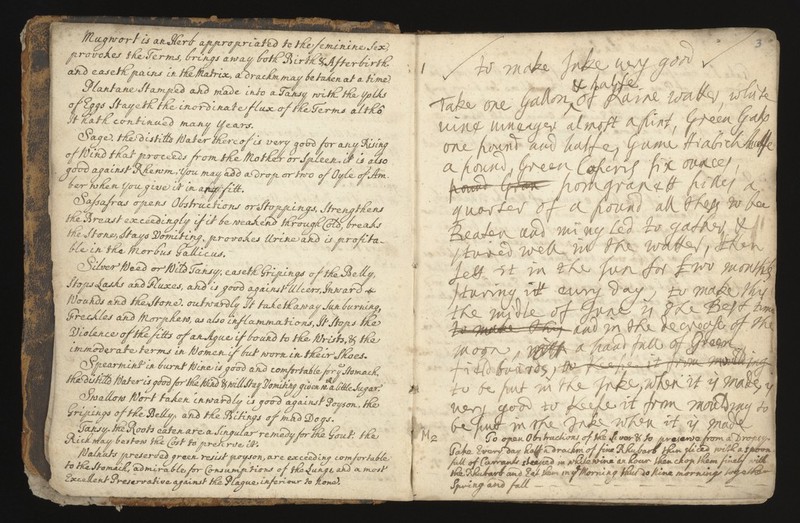 Mugwort is an Herb appropriated to the feminine Sex,
provokes the Terms, brings away both Birth & Afterbirth
and easeth pains in the Matrix, a drachm may be taken at a time
Plantane Stamped and made into a Tansy with the yolks
of Eggs Stayeth the inordinate flux of the Terms altho
it hath continued many years.
Sage, the distill'd Water thereof is very good for any Rising
of Wind that proceeds from the Mother or Spleen, it is also
good against Rhewm. You may add a drop or two of Oyle of Am-
ber when you give it in any fitt.
Sassafras opens Obstructions or Stoppings, Strengthens
the Breast exceedingly if it be weakend through Cold, breaks
the Stone, Stays Vomiting, provokes Urine and is profita-
ble in the Morbus Gallicus.
Silver Weed or Wild Tansy, easeth Gripings of the Belly,
Stops Lasks and Fluxes, and is good against Ulcers, Inward &
Wounds and the Stone: outwardly It taketh away Sunburning,
Freckles and Morphew, as also inflammations, It Stops the
Violence of the fitts of an Ague if bound to the Wrists, & the
immoderate terms in Women if but worn in their Shoes.
Spearmint in burnt Wine is good and comfortable for ye Stomach,
the distill'd Water is good for the Head & will Stay Vomiting given in a little Sugar.
Swallow Wort taken inwardly is good against Poyson, the
Gripings of the Belly, and the Bitings of mad Dogs.
Tansy, the Roots eaten are a Singular remedy for the Gout: the
Rich may bestow the Cost to preserve it.
Walnuts preserved green resist poyson, are exceeding comfortable
to the Stomach, admirable for Consumptions of the Lungs and a most
Excellent Preservative against the Plague, inferiour to none.
3
1 to make Inke very good
& halfe
Take one Gallon of Raine watter, white
vine vineager almost a pint, Green Gals
one pound and halfe, Gume Harbick halfe
a pound, Green Coperis six ounces,
pound Gran pomgranett pilles a
quarter of a pound all these to bee
Beaten and mingled to gather, &
stured well in the watter, then
sett it in the sun for two months
sturing itt every day, to make this
the midle of June is the Best time
to make this and in the decrease of the
moon, with a hand full of Green
field bairds, to keepe it from moulding
to be put in the Inke, when it is made, is
very good to keepe it from moulding to
be put in the Inke when it is made
N2 To open Obstructions of the Liver & to preserve from a Dropsy
Take Every day half a drachm of fine Rhubarb thin sliced with a spoon-
full of Currants steeped in white wine an hour then chop them finely with
the Rhubarb and Eat them in ye Morning thus do Nine mornings together
Spring and fall